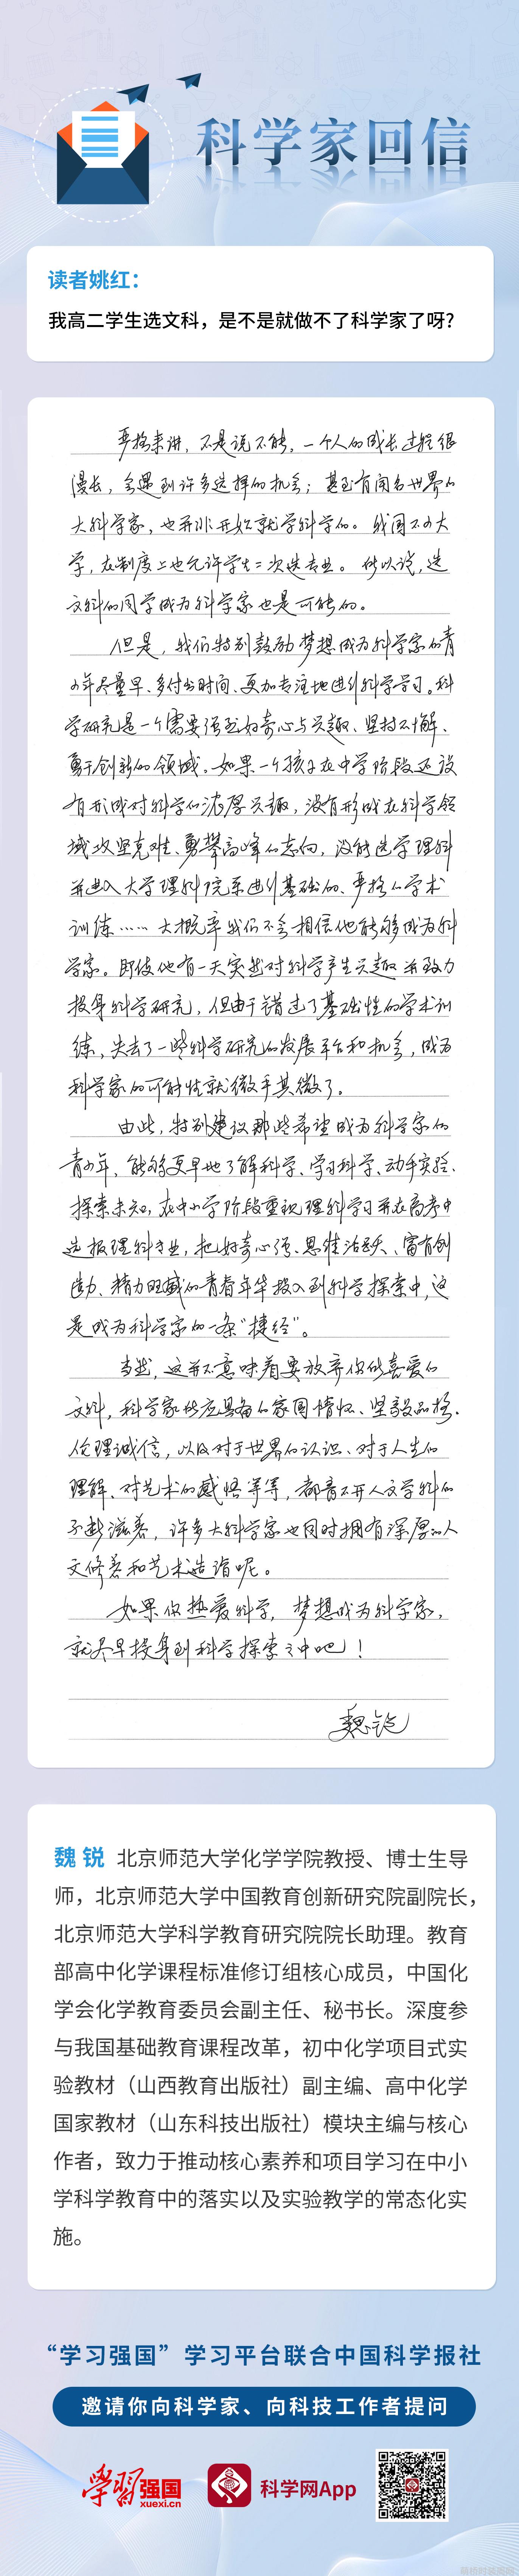 科学家回信
读者姚红：
我高二学生选文科，是不是就做不了科学家了呀？
严格来讲，不是说不能，一个人的成长过程很
漫长，会遇到许多选择的机会；甚至有闻名世界的
大科学家，也并非开始就学科学的。我国不少大
学，在制度上也允许学生二次选专业。所以说，选
文科的同学成为科学家也是可能的。
但是，我们特别鼓励梦想成为科学家的青
少年尽量早、多付出时间、更加专注地进行科学学习。科
学研究是一个需要强烈好奇心与兴趣、坚持不懈、
勇于创新的领域。如果一个孩子在中学阶段还没
有形成对科学的浓厚兴趣，没有形成在科学领
域攻坚克难、勇攀高峰的志向，没能选学理科
并进入大学理科院系进行基础的、严格的学术
训练……大概率我们不会相信他能够成为科
学家。即使他有一天突然对科学产生兴趣并致力
投身科学研究，但由于错过了基础性的学术训
练，失去了一些科学研究的发展平台和机会，成为
科学家的可能性就微乎其微了。
由此，特别建议那些希望成为科学家的
青少年，能够更早地了解科学、学习科学、动手实验、
探索未知，在中小学阶段重视理科学习并在高考中
选报理科专业，把好奇心强、思维活跃、富有创
造力、精力旺盛的青春年华投入到科学探索中，这
是成为科学家的一条“捷径”。
当然，这并不意味着要放弃你所喜爱的
文科，科学家所应具备的家国情怀、坚毅品格、
伦理诚信，以及对于世界的认识、对于人生的
理解、对艺术的感悟等等，都离不开人文学科的
不断滋养，许多大科学家也同时拥有深厚的人
文修养和艺术造诣呢。
如果你热爱科学，梦想成为科学家，
就尽早投身到科学探索之中吧！
魏锐
魏锐 北京师范大学化学学院教授、博士生导
师，北京师范大学中国教育创新研究院副院长，
北京师范大学科学教育研究院院长助理。教育
部高中化学课程标准修订组核心成员，中国化
学会化学教育委员会副主任、秘书长。深度参
与我国基础教育课程改革，初中化学项目式实
验教材（山西教育出版社）副主编、高中化学
国家教材（山东科技出版社）模块主编与核心
作者，致力于推动核心素养和项目学习在中小
学科学教育中的落实以及实验教学的常态化实
施。
“学习强国”学习平台联合中国科学报社
邀请你向科学家、向科技工作者提问
学习强国
xuexi.cn
科学网App